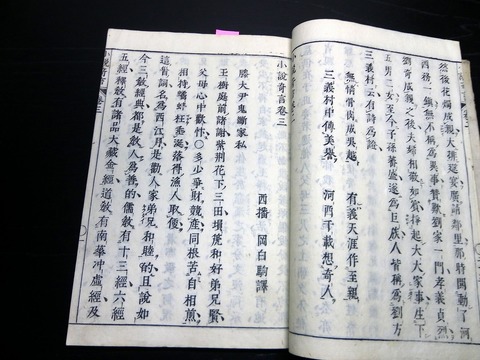 然後花燭成親大排筵宴廣請鄰里那時閧動了河
西務一鎮無不稱為異事贊嘆劉家一門孝義貞烈
劉奇成親之後夫婦相敬如賓掙起大大家事生下
五男二女至今子孫蕃盛遂為巨族人皆稱為劉方
三義村云有詩為證
無情骨肉成吳越 有義天涯作至親
三義村中傳美譽 河西千載想奇人
小說奇言卷三
西播 岡白駒譯
滕大尹鬼斷家私
玉樹庭前諸謝紫荊花下三田塤箎和好弟兄賢
父母心中歡忭○多少爭財競產同根苦自相煎
相持鷸蚌枉垂涎落得漁人取便
這首詞名為西江月是勸人家弟兄和睦的且說如
今三教經典都是教人為善的儒教有十三經六經
五經釋教有諸品大藏金經道教有南華冲虛經及